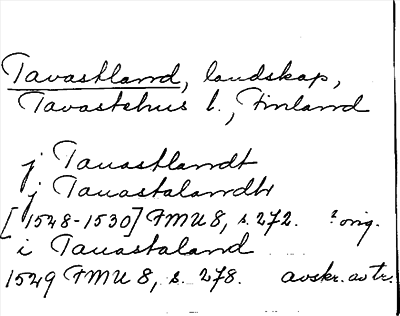 Tavastland, landskap,
Tavastehus l., Finland
j Tauastlandt
j Tauastalandtr
[1548-1530] FMU 8, s. 272. ? orig.
i Tauastaland
1549 FMU 8, s. 278. avskr. av tr.